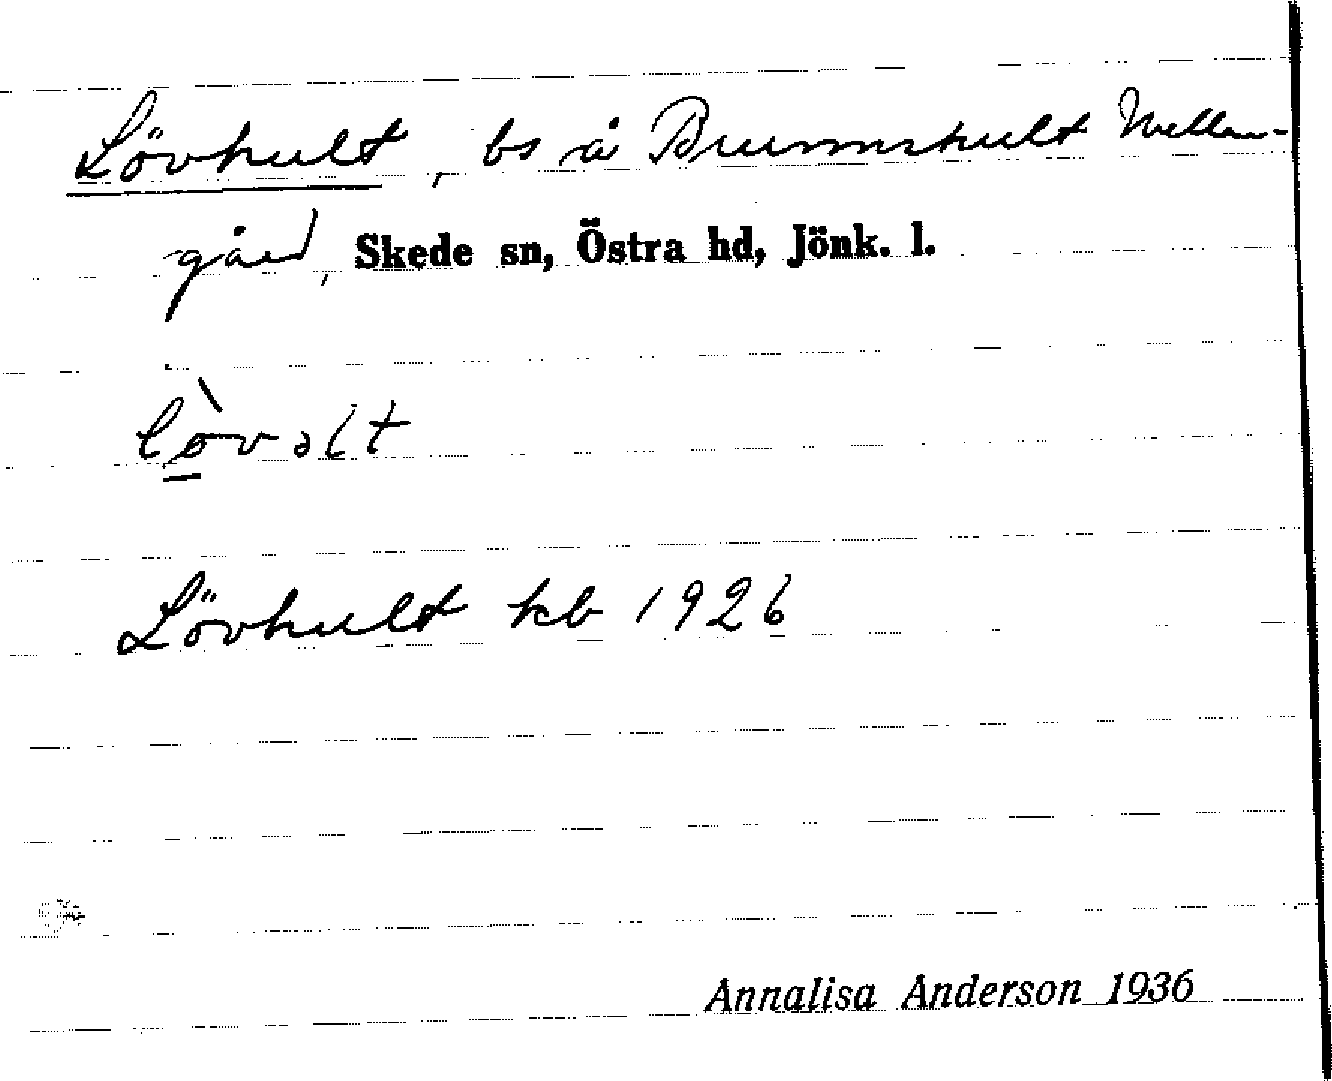 Lövhult, bs å Brunnshult Mellan-
gård, Skede sn, Östra hd, Jönk. l.
lø̱̀vəlt
Lövhult kb 1926
Annalisa Anderson 1936